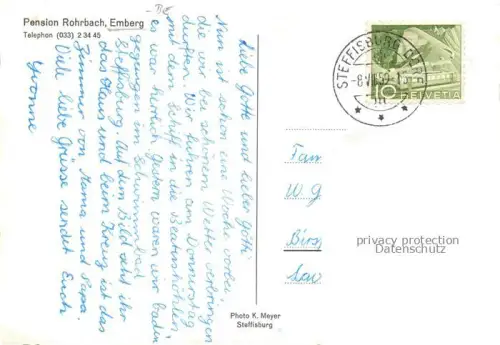 Pension Rohrbach, Emberg
Telephon (033) 2 34 45
Liebe Gotte und lieber Götti
Nun ist schon eine Woche vorbei,
die wir bei schönem Wetter verbringen
durften. Wir fuhren am Donnerstag
mit dem Schiff in die Beatushöhlen
es war herrlich. Gestern waren wir baden
gegangen im Schwimmbad
Steffisburg. Auf dem Bild seht ihr
das Haus und beim Kreuz ist das
Zimmer von Mama und Papa.
Viele liebe Grüsse sendet Euch
Yvonne
STEFFISBURG
HELVETIA
10
Fam
W. G
Birs
privacy protection
Datenschutz
Photo K. Meyer
Steffisburg